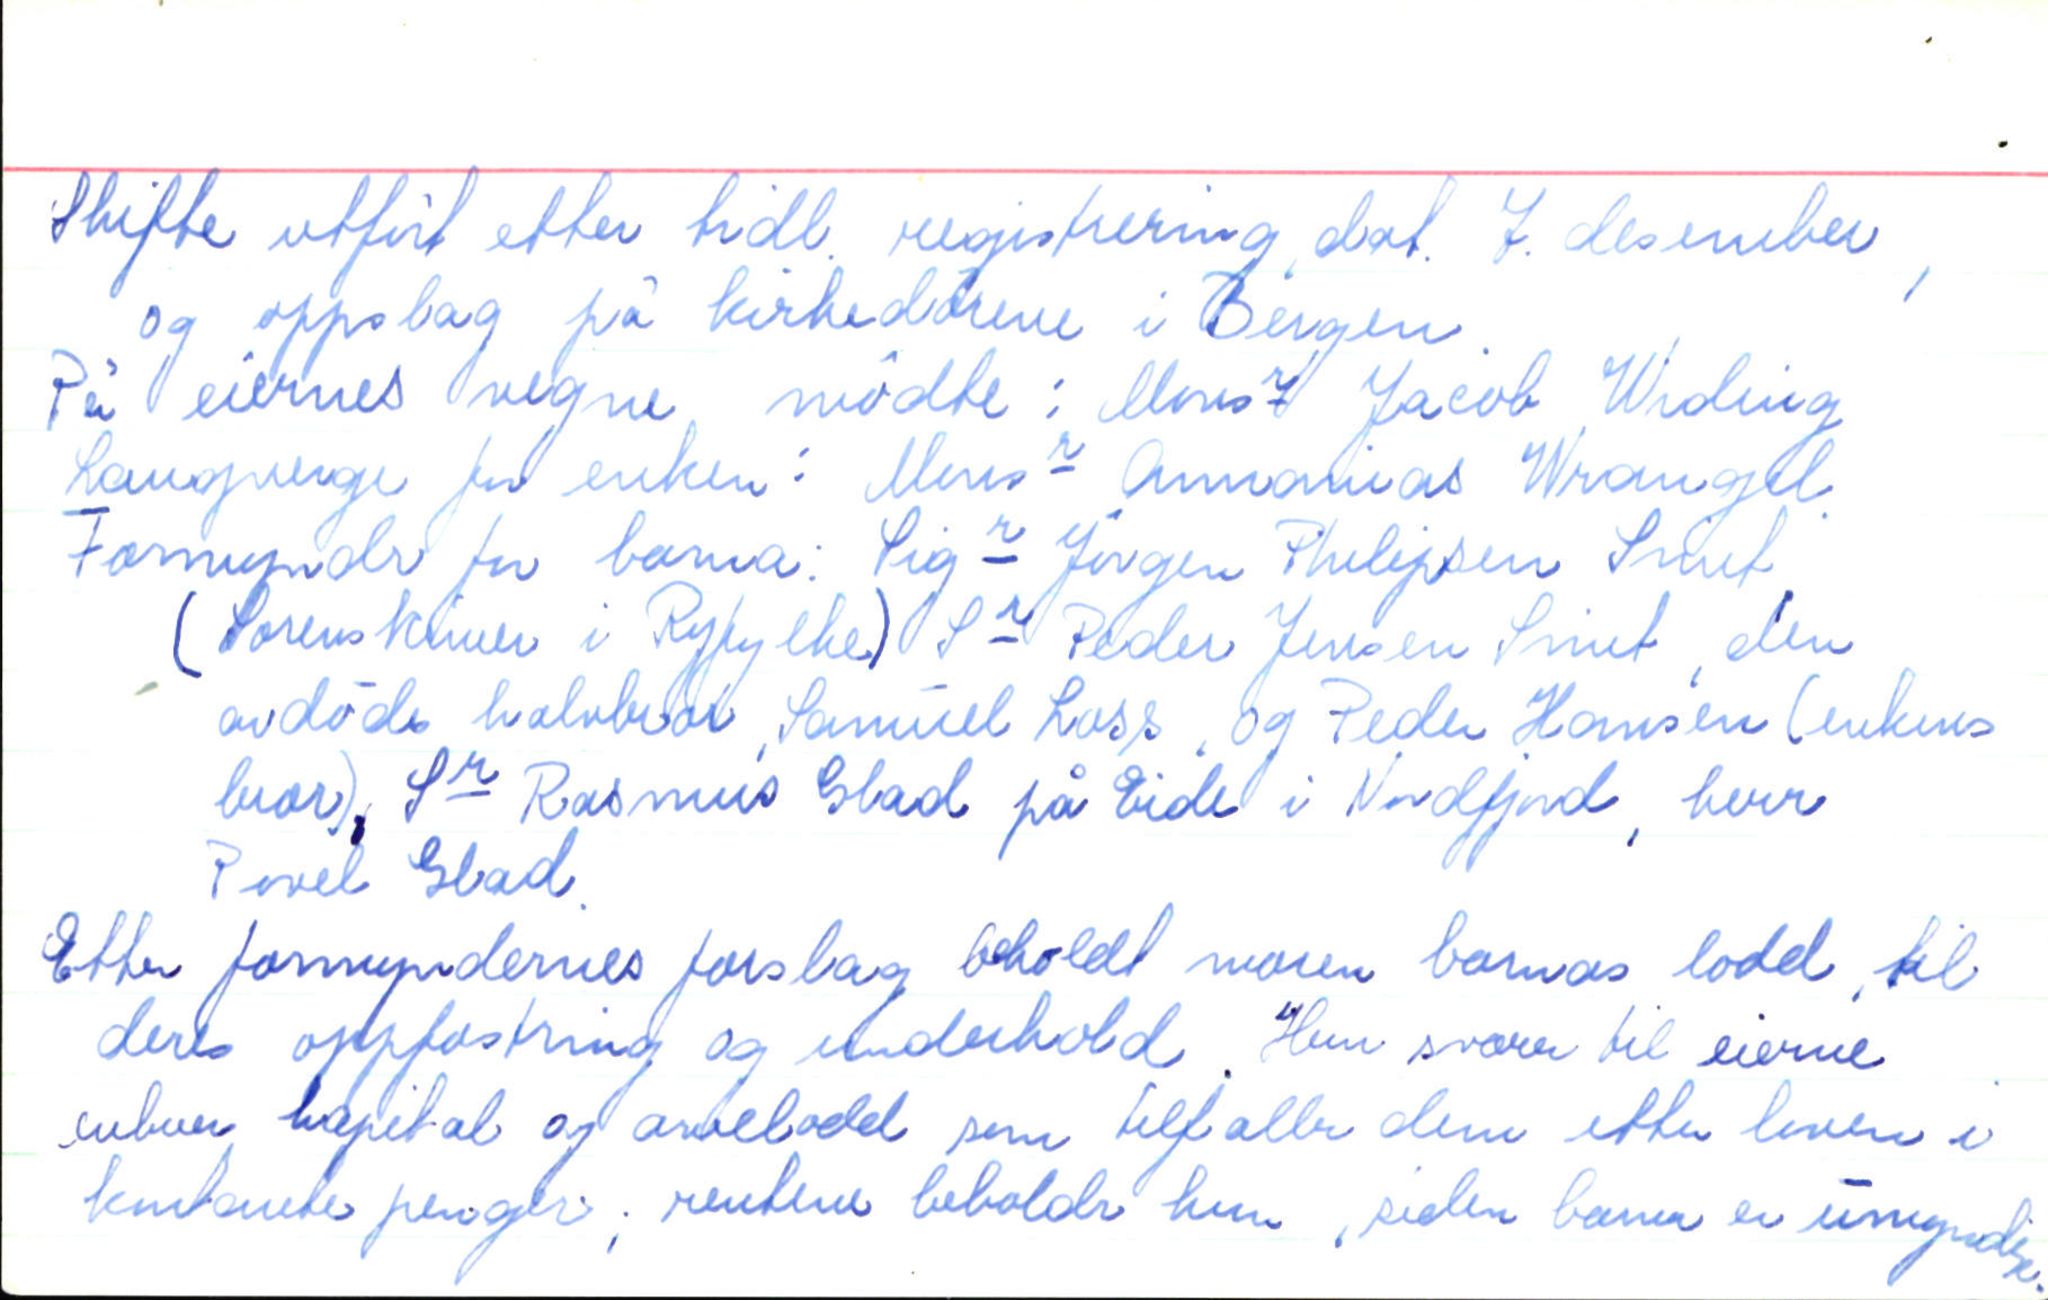 Skifte utfört etter tidl. registrering, dat. 7. desember,
og oppslag på kirkedörene i Bergen.
På eiernes vegne mödte: Mons<sup>r</sup> Jacob Widing
Laugverge for enken: Mons<sup>r</sup> Annanias Wrangel.
Formyndr for barna: Sig<sup>r</sup> Jörgen Philipsen Smit
(Sorenskriver i Ryfylke) S<sup>r</sup> Peder Jensen Smit, den
avdödes halvbror, Samuel Lass, og Peder Hansen (enkens
bror), S<sup>r</sup> Rasmus Glad på Eide i Nordfjord, herr
Povel Glad.
Etter formyndernes forslag beholdt moren barnas lodd, til
deres oppfostring og underhold. Hun svarer til eierne
enhver kapital og arvelodd som tilfaller dem etter loven i
kontante penger; rentene beholdr hun, siden barna er umyndige.